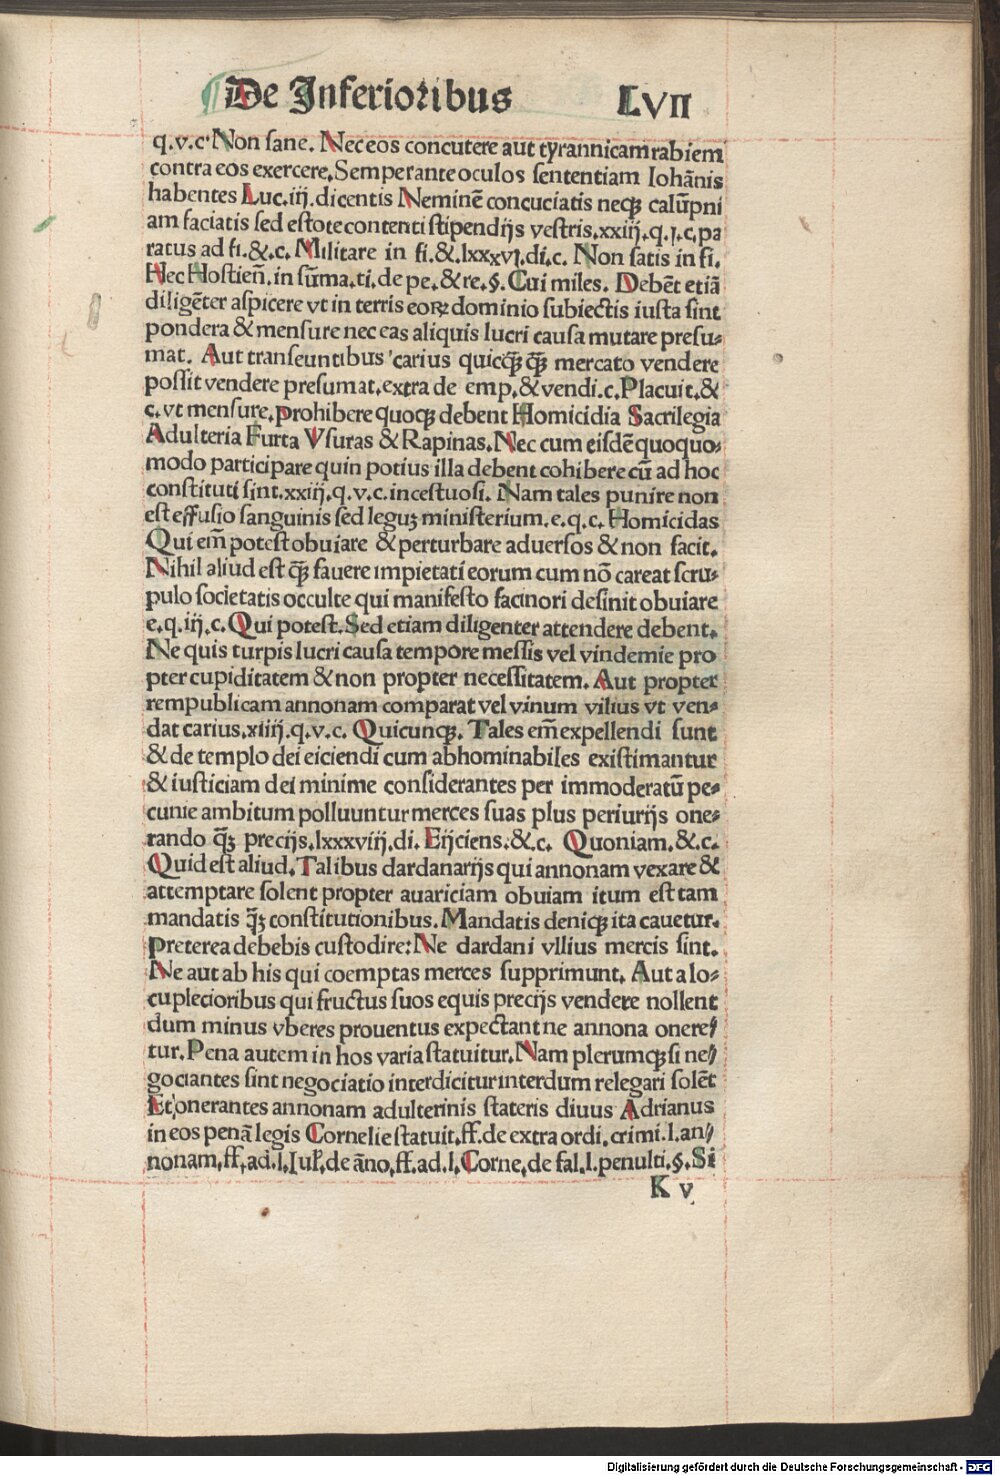 De Inferioribus LVII
q.v.c. Non sane. Nec eos concutere aut tyrannicam rabiem
contra eos exercere. Semper ante oculos sententiam Iohānis
habentes Luc.iij. dicentis Neminē concuciatis neqꝫ calūpni
am faciatis sed estote contenti stipendijs vestris.xxiij.q.j.c.pa
ratus ad fi.&.c. Militare in fi.&.lxxxvj.di.c. Non satis in fi.
Nec Hostieñ. in sūma.ti.de pe.&re.§. Cui miles. Debēt etiā
diligēter aspicere vt in terris eorꝝ dominio subiectis iusta sint
pondera & mensure nec eas aliquis lucri causa mutare presu⸗
mat. Aut transeuntibus carius quicqꝫ qꝫ̄ mercato vendere
possit vendere presumat.extra de emp.&vendi.c.Placuit.&
c.vt mensure.prohibere quoqꝫ debent Homicidia Sacrilegia
Adulteria Furta Vsuras & Rapinas.Nec cum eisdē quoquo⸗
modo participare quin potius illa debent cohibere cū ad hoc
constituti sint.xxiij.q.v.c.incestuosi. Nam tales punire non
est effusio sanguinis sed leguꝫ ministerium.e.q.c. Homicidas
Qui em̄ potest obuiare & perturbare aduersos & non facit.
Nihil aliud est qꝫ̄ fauere impietati eorum cum nō careat scru⸗
pulo societatis occulte qui manifesto facinori desinit obuiare
e.q.iij.c.Qui potest.Sed etiam diligenter attendere debent.
Ne quis turpis lucri causa tempore messis vel vindemie pro
pter cupiditatem & non propter necessitatem. Aut propter
rempublicam annonam comparat vel vinum vilius vt ven⸗
dat carius.xiiij.q.v.c. Quicunqꝫ. Tales em̄ expellendi sunt
& de templo dei eiciendi cum abhominabiles existimantur
& iusticiam dei minime considerantes per immoderatū pe⸗
cunie ambitum polluuntur merces suas plus periurijs one⸗
rando qꝫ̄ precijs.lxxxviij.di. Eijciens.&.c. Quoniam.&.c.
Quid est aliud.Talibus dardanarijs qui annonam vexare &
attemptare solent propter auariciam obuiam itum est tam
mandatis qꝫ̄ constitutionibus. Mandatis deniqꝫ ita cauetur.
preterea debebis custodire: Ne dardani vllius mercis sint.
Ne aut ab his qui coemptas merces supprimunt. Aut a lo⸗
cuplecioribus qui fructus suos equis precijs vendere nollent
dum minus vberes prouentus expectant ne annona onere⸗
tur.Pena autem in hos varia statuitur.Nam plerumqꝫ si ne⸗
gociantes sint negociatio interdicitur interdum relegari solēt
Et onerantes annonam adulterinis stateris diuus Adrianus
in eos penā legis Cornelie statuit.ff.de extra ordi.crimi.l.an⸗
nonam.ff.ad.l.Iul.de āno.ff.ad.l.Corne.de fal.l.penulti.§.Si
K v
Digitalisierung gefördert durch die Deutsche Forschungsgemeinschaft - DFG